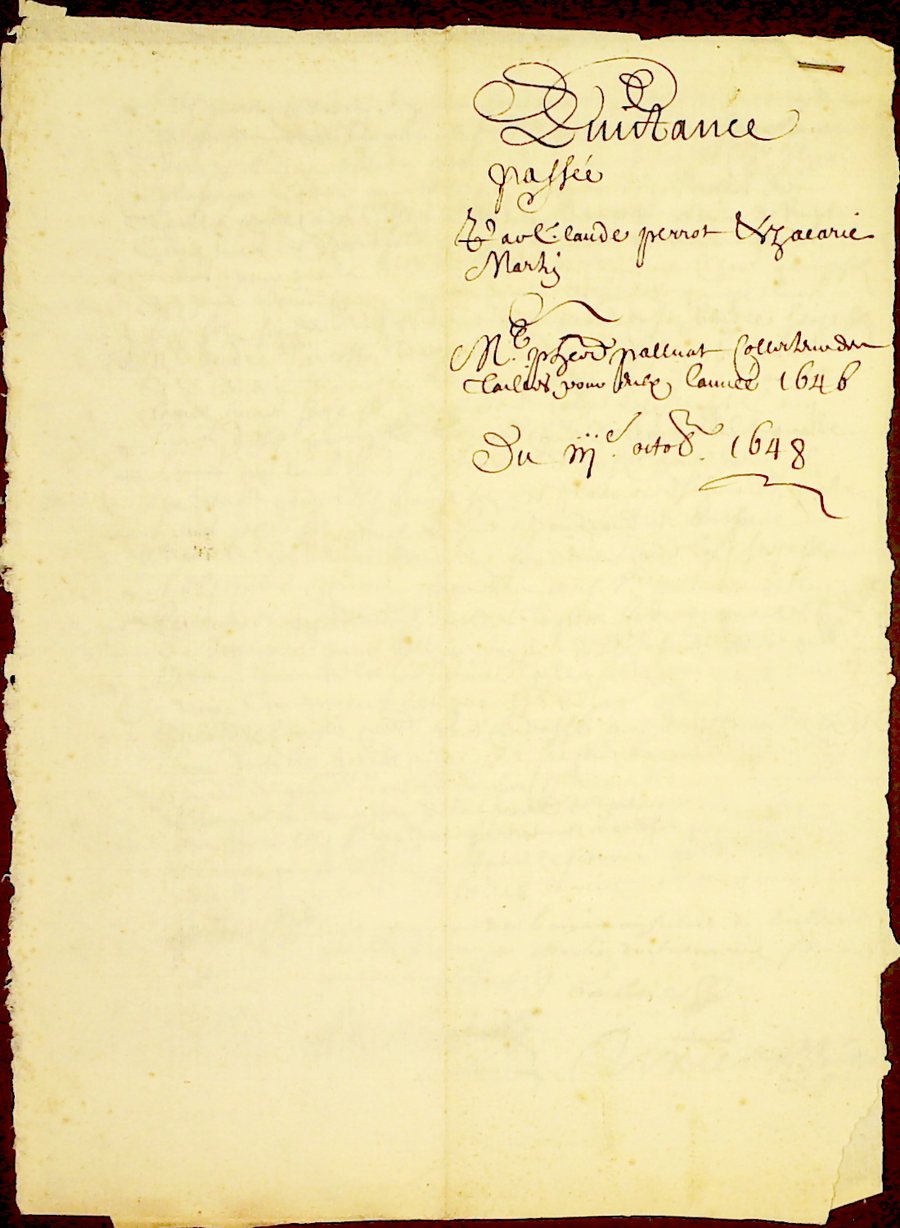 Quictance
passée
Par Claude perrot & Zacarie
Martin
A
Me palluat Collecteur des
Tailles pour lannée 1646
Du iije octob. 1648